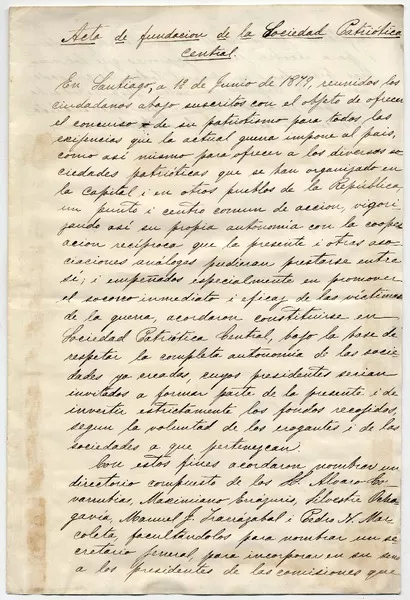 Acta de fundacion de la Sociedad Patriótica
Central.
En Santiago, a 12 de Junio de 1879, reunidos los
ciudadanos abajo suscritos con el objeto de ofrecer
el concurso de su patriotismo para todas las
exijencias que la actual guerra impone al pais,
como así mismo para ofrecer a los diversos so
ciedades patrióticas que se han organizado en
la Capital i en otros pueblos de la República,
un punto i centro comun de accion, vigori
zando así su propia autonomía con la coope
racion recíproca que la presente i otras aso
ciaciones análogas pudieran prestarse entre
sí; i empeñados especialmente en promover
el socorro inmediato i eficaz de las víctimas
de la guerra, acordaron constituirse en
Sociedad Patriótica Central, bajo la base de
respetar la completa autonomía de las socie
dades ya creadas, cuyos presidentes serian
invitados a formar parte de la presente i de
invertir estrictamente los fondos recojidos,
segun la voluntad de los erogantes i de las
sociedades a que pertenezcan.
Con estos fines acordaron nombrar un
directorio compuesto de los Alvaro Co
varrubias, Maximiano Errázuriz,
Manuel J. Irarrázabal i Pedro N. Mar
coleta, facultándolos para nombrar un se
cretario jeneral, para incorporar en su seno
a los presidentes de las comisiones que